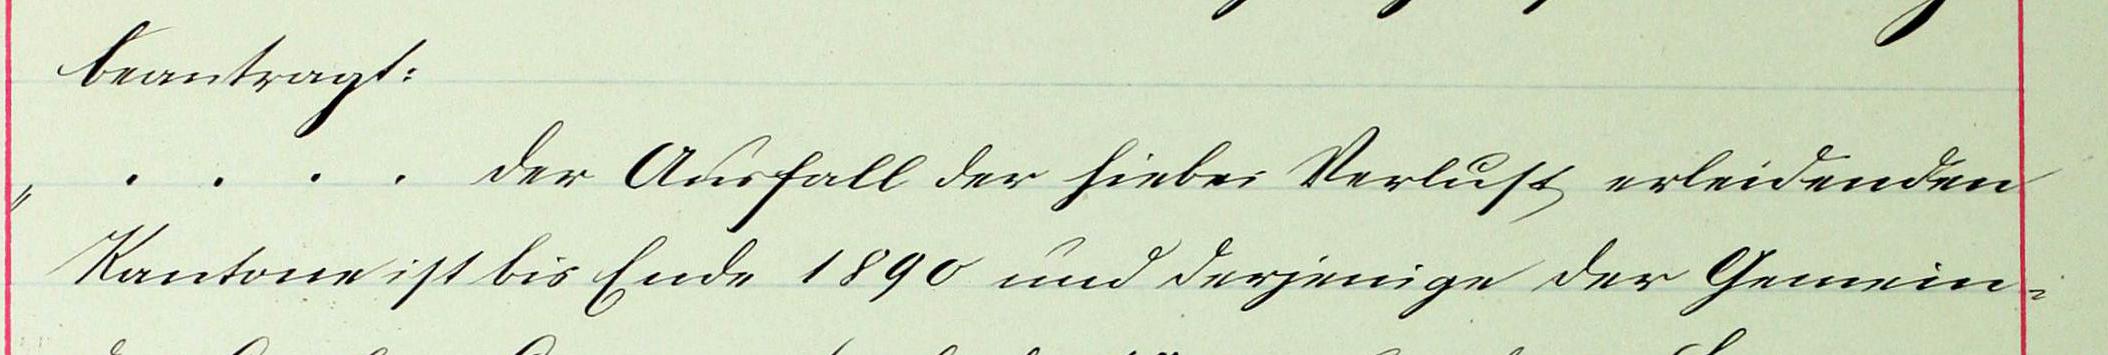 beantragt:
„ . . . . der Ausfall der hiebei Verlust erleidenden
Kantone ist bis Ende 1890 und derjenige der Gemein-